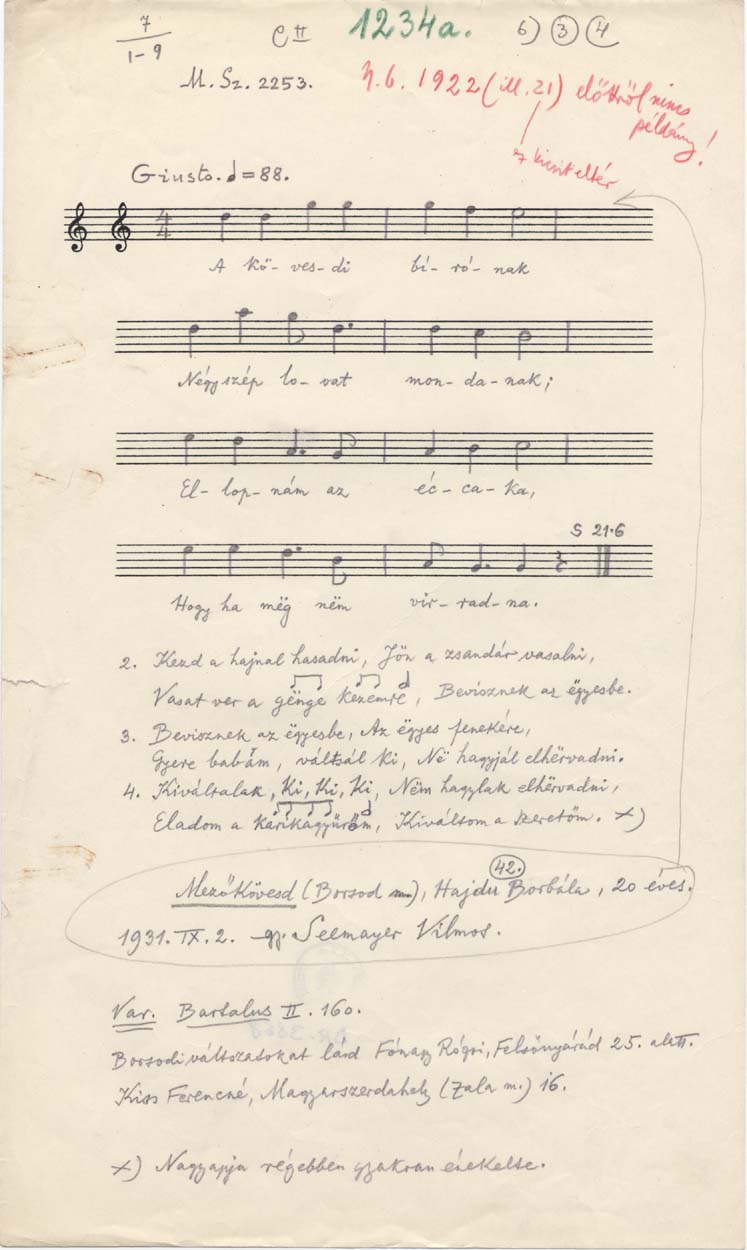 7
1-9
C II
1234a.
6) 3 4
M. Sz. 2253.
1922 (ill. 21) előttről nincs
példány!
ez kicsit eltér
Giusto. = 88.
4
4
A kö- ves- di bí- ró- nak
Négy szép lo- vat mon- da- nak;
El- lop- nám az éc- ca- ka,
S 21.6
Hogy ha mëg nëm vir- rad- na.
2. Kezd a hajnal hasadni, Jön a zsandár vasalni,
Vasat ver a gënge kezemre, Bevisznek az ëgyesbe.
3. Bevisznek az ëgyesbe, Az ëgyes fenekére,
Gyere babám, váltsál ki, Në hagyjál elhërvadni.
4. Kiváltalak, Ki, Ki, Ki, Nëm hagylak elhërvadni,
Eladom a karikagyűrőm, Kiváltom a szeretőm. x)
42.
Mezőkövesd (Borsod m.), Hajdu Borbála, 20 éves.
1931. IX. 2. gy. Seemayer Vilmos.
Var. Bartalus II. 160.
Borsodi változatokat lásd Fónagy Rógri, Felsőnyárád 25. alatt.
Kiss Ferencné, Magyarszerdahely (Zala m.) 16.
x) Nagyapja régebben gyakran énekelte.